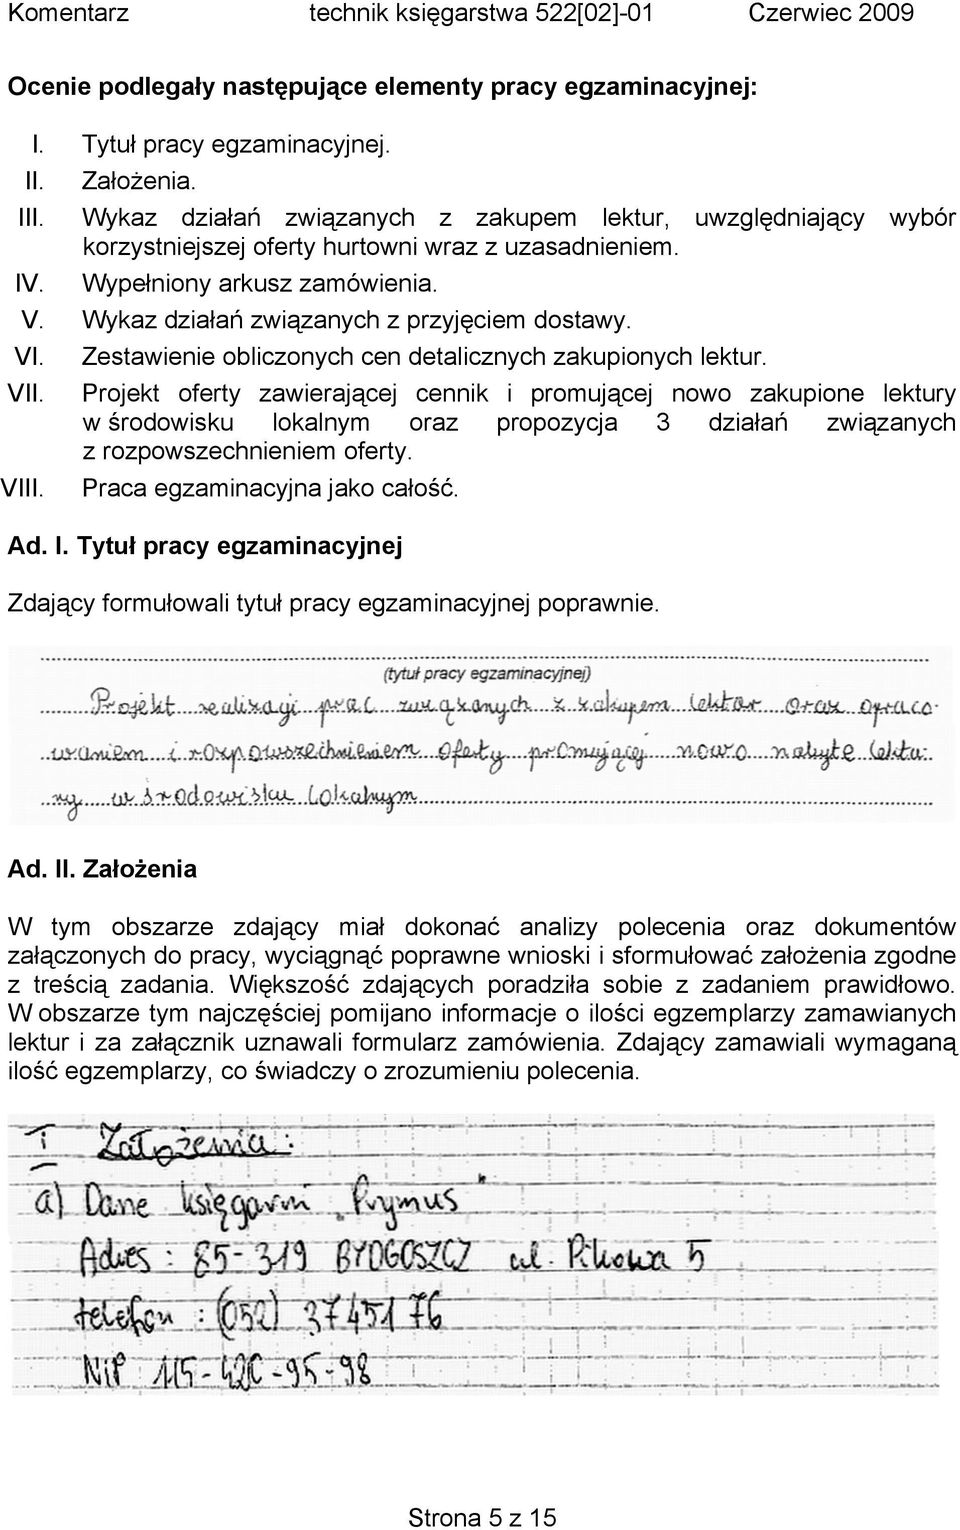 Komentarz technik księgarstwa 522[02]-01 Czerwiec 2009
Ocenie podlegały następujące elementy pracy egzaminacyjnej:
I. Tytuł pracy egzaminacyjnej.
II. Założenia.
III. Wykaz działań związanych z zakupem lektur, uwzględniający wybór
korzystniejszej oferty hurtowni wraz z uzasadnieniem.
IV. Wypełniony arkusz zamówienia.
V. Wykaz działań związanych z przyjęciem dostawy.
VI. Zestawienie obliczonych cen detalicznych zakupionych lektur.
VII. Projekt oferty zawierającej cennik i promującej nowo zakupione lektury
w środowisku lokalnym oraz propozycja 3 działań związanych
z rozpowszechnieniem oferty.
VIII. Praca egzaminacyjna jako całość.
Ad. I. Tytuł pracy egzaminacyjnej
Zdający formułowali tytuł pracy egzaminacyjnej poprawnie.
(tytuł pracy egzaminacyjnej)
Projekt realizacji prac związanych z zakupem lektur oraz opraco-
waniem i rozpowszechnieniem oferty promującej nowo nabyte lektu-
ry w środowisku lokalnym
Ad. II. Założenia
W tym obszarze zdający miał dokonać analizy polecenia oraz dokumentów
załączonych do pracy, wyciągnąć poprawne wnioski i sformułować założenia zgodne
z treścią zadania. Większość zdających poradziła sobie z zadaniem prawidłowo.
W obszarze tym najczęściej pomijano informacje o ilości egzemplarzy zamawianych
lektur i za załącznik uznawali formularz zamówienia. Zdający zamawiali wymaganą
ilość egzemplarzy, co świadczy o zrozumieniu polecenia.
I Założenia:
a) Dane księgarni „Prymus"
Adres: 85-319 BYDGOSZCZ ul. Pikowa 5
telefon: (052) 3745176
NIP 115-420-95-98
Strona 5 z 15